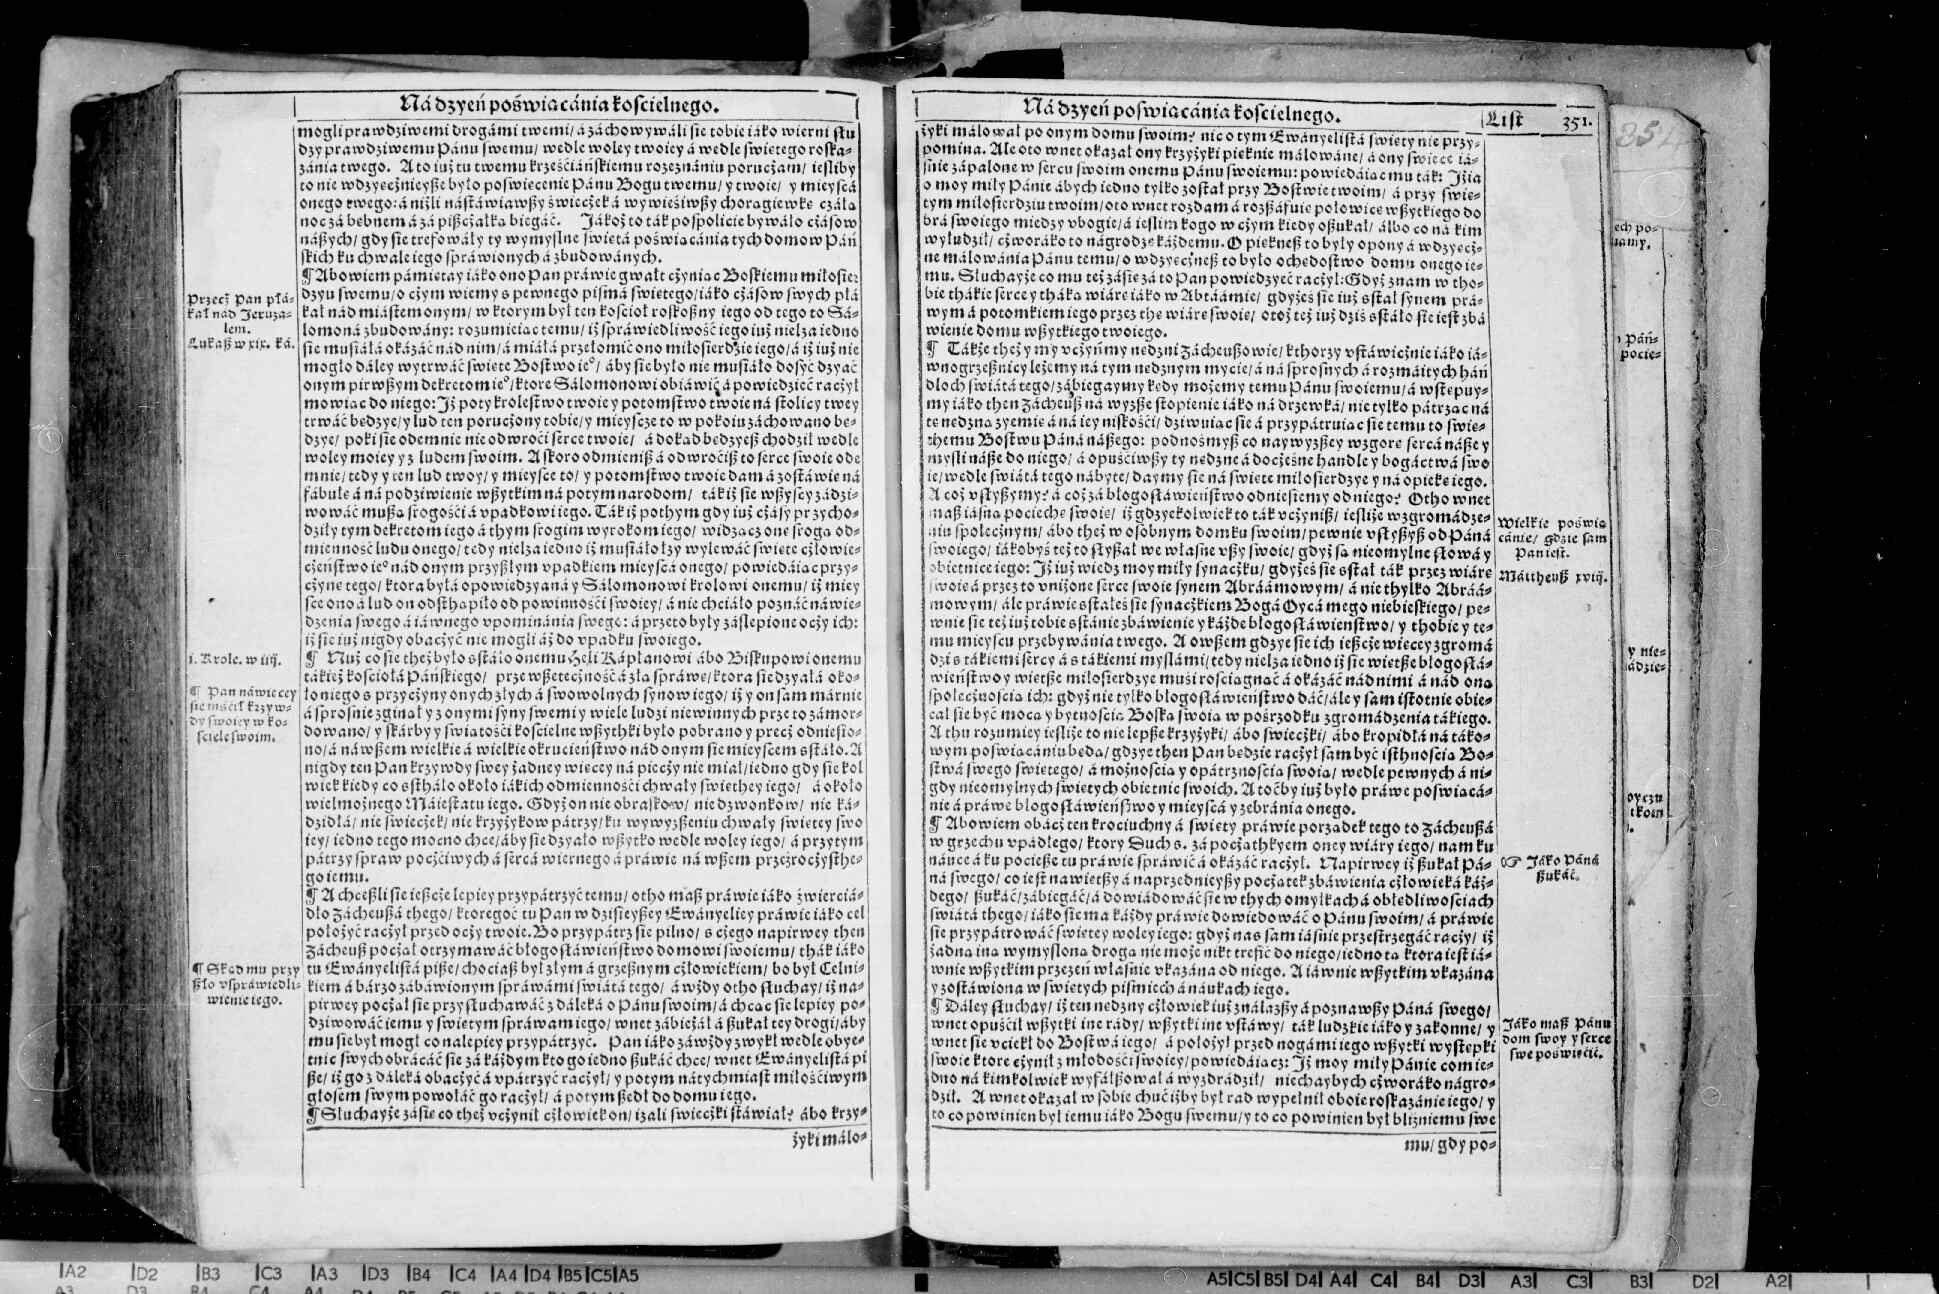 Ná dzyeń poświącánia kościelnego.
mogli prawdziwemi drogámi twemi/ á záchowywáli sie tobie iáko wierni słu
dzy prawdziwemu Pánu swemu/ wedle woley twoiey á wedle świetego roska-
zánia twego. A to iuż tu twemu krześćiáńskiemu rozeznániu poruczam/ iesliby
to nie wdzyecznieysze było poświecenie Pánu Bogu twemu/ y twoie/ y mieyscá
onego twego: á niżli nástáwiawszy świeczek á wywieśiwszy chorągiewke cząłą
noc zá bębnem á zá piszczałką biegáć. Jákoż to ták pospolicie bywáło czásow
nászych/ gdy sie trefowáły ty wymyslne świetá poświącánia tych domow Páń
skich ku chwale iego spráwionych á zbudowánych.
¶ Abowiem pámietay iáko ono Pan práwie gwałt czyniąc Boskiemu miłosier
dzyu swemu/ o czym wiemy s pewnego pismá świetego/ iáko czásow swych płá
kał nád miástem onym/ w ktorym był ten kościoł roskoszny iego od tego to Sá-
lomoná zbudowány: rozumieiąc temu/ iż spráwiedliwość iego iuż nielza iedno
sie musiáłá okázáć nád nim/ á miáłá przełomić ono miłosierdzie iego/ á iż iuż nie
mogło dáley wytrwáć świete Bostwo ieº/ áby sie było nie musiáło dosyć dzyać
onym pirwszym dekretom ieº/ ktore Sálomonowi obiáwić á powiedzieć raczył
mowiąc do niego: Iż poty krolestwo twoie y potomstwo twoie ná stolicy twey
trwáć będzye/ y lud ten poruczony tobie/ y mieyscze to w pokoiu záchowano bę-
dzye/ poki sie odemnie nie odwroći serce twoie/ á dokąd będzyesz chodził wedle
woley moiey y z ludem swoim. A skoro odmienisz á odwroćisz to serce swoie ode
mnie/ tedy y ten lud twoy/ y mieysce to/ y potomstwo twoie dam á zostáwie ná
fábułe á ná podziwienie wszytkim ná potym narodom/ tákiż sie wszyscy zádzi-
wowáć muszą srogośći á vpadkowi iego. Ták iż pothym gdy iuż czásy przycho-
dziły tym dekretom iego á thym srogim wyrokom iego/ widząc one srogą od-
mienność ludu onego/ tedy nielza iedno iż musiáło łzy wylewáć świete człowie-
czeństwo ieº nád onym przyszłym vpadkiem mieyscá onego/ powiedáiąc przy-
czyne tego/ ktora byłá opowiedzyaná y Sálomonowi krolowi onemu/ iż miey
sce ono á lud on odsthąpiło od powinnośći swoiey/ á nie chciáło poznáć náwie-
dzenia swego á iáwnego vpominánia swego: á przeto były záslepione oczy ich:
iż sie iuż nigdy obaczyć nie mogli áż do vpadku swoiego.
¶ Nuż co sie theż było sstáło onemu Heli Kápłanowi ábo Biskupowi onemu
tákież kościołá Páńskiego/ prze wszeteczność á złą spráwe/ ktora sie dzyałá oko-
ło niego s przyczyny onych złych á swowolnych synow iego/ iż y on sam márnie
á sprosnie zginął y z onymi syny swemi y wiele ludzi niewinnych prze to zámor-
dowano/ y skárby y świątośći kościelne wszythki było pobrano y precz odniesio-
no/ á náwszem wielkie á wielkie okrucieństwo nád onym sie mieyscem sstáło. A
nigdy ten Pan krzywdy swey żadney więcey ná pieczy nie miał/ iedno gdy sie kol
wiek kiedy co ssthało około iákich odmiennośći chwały swiethey iego/ á około
wielmożnego Máiestatu iego. Gdyż on nie obraskow/ nie dzwonkow/ nie ká-
dzidłá/ nie świeczek/ nie krzyżykow pátrzy/ ku wywyższeniu chwały świetey swo
iey/ iedno tego mocno chce/ áby sie dzyało wszytko wedle woley iego/ á przytym
pátrzy spraw poczćiwych á sercá wiernego á práwie ná wszem przezroczysthe-
go iemu.
¶ A chceszli sie ieszcze lepiey przypátrzyć temu/ otho masz práwie iáko źwierciá-
dło Zácheuszá thego/ ktoregoć tu Pan w dzisieyszey Ewányeliey práwie iáko cel
położyć raczył przed oczy twoie. Bo przypátrz sie pilno/ s czego napirwey then
Zácheusz począł otrzymawáć błogosłáwieństwo domowi swoiemu/ thák iáko
tu Ewányelistá pisze/ chociasz był złym á grzesznym człowiekiem/ bo był Celni-
kiem á bárzo zábáwionym spráwámi świátá tego/ á wżdy otho słuchay/ iż na-
pirwey począł sie przysłuchawáć z dáleká o Pánu swoim/ á chcąc sie lepiey po-
dziwowáć iemu y świetym spráwam iego/ wnet zábieżał á szukał tey drogi/ áby
mu sie był mogł co nalepiey przypátrzyć. Pan iáko záwżdy zwykł wedle obye-
tnic swych obrácáć sie zá káżdym kto go iedno szukáć chce/ wnet Ewányelistá pi
sze/ iż go z dáleká obaczyć á vpátrzyć raczył/ y potym nátychmiast miłośćiwym
głosem swym powołáć go raczył/ á potym szedł do domu iego.
¶ Słuchayże zásie co też vczynił człowiek on/ izali świeczki stáwiał? ábo krzy-
żyki málo-
Przecż Pan płá-
kał nád Jeruza-
lem.
Łukasz w xix. ká.
i. Krole. w iiij.
¶ Pan nawięcey
sie mśćił krzyw-
dy swoiey w ko-
ściele swoim.
¶ Skąd mu przy
szło vspráwiedli-
wienie iego.
Ná dzyeń poświącánia kościelnego.
List 351.
żyki málował po onym domu swoim? nic o tym Ewányelistá święty nie przy-
pomina. Ale oto wnet okazał ony krzyżyki pięknie málowáne/ á ony świece iá-
śnie zápalone w sercu swoim onemu Pánu swoiemu: powiedáiąc mu ták: Iż ia
o moy miły Pánie ábych iedno tylko został przy Bostwie twoim/ á przy świe-
tym miłosierdziu twoim/ oto wnet rozdam á rozszáfuie połowice wszytkiego do
brá swoiego miedzy vbogie/ á ieslim kogo w czym kiedy oszukał/ álbo co ná kim
wyłudził/ czworáko to nágrodze káżdemu. O pięknesz to były opony á wdzyecz-
ne málowánia Pánu temu/ o wdzyecznesz to było ochędostwo domu onego ie-
mu. Słuchayże co mu też zásie zá to Pan powiedzyeć raczył: Gdyż znam w tho-
bie thákie serce y tháką wiáre iáko w Abráámie/ gdyżeś sie iuż sstał synem prá-
wym á potomkiem iego przez thę wiáre swoie/ otoż też iuż dziś sstáło sie iest zbá
wienie domu wszytkiego twoiego.
¶ Tákże theż y my vczyńmy nędzni Zácheuszowie/ kthorzy vstáwicznie iáko iá-
wnogrzesznicy leżemy ná tym nędznym mycie/ á ná sprosnych á rozmáitych hán
dloch świátá tego/ zábiegaymy kędy możemy temu Pánu swoiemu/ á wstępuy-
my iáko then Zácheusz ná wyzsze stopienie iáko ná drzewká/ nie tylko pátrząc ná
tę nędzną zyemie á ná iey niskośći/ dziwuiąc sie á przypátruiąc sie temu to świe-
themu Bostwu Páná nászego: podnosmysz co naywyzszey wzgorę sercá násze y
mysli násze do niego/ á opuśćiwszy ty nędzne á docześne handle y bogáctwá swo
ie/ wedle świátá tego nábyte/ daymy sie ná świete miłosierdzye y ná opieke iego.
A coż vsłyszymy? á coż zá błogosłáwieństwo odniesiemy od niego? Otho wnet
masz iásną pociechę swoię/ iż gdzyekolwiek to ták vczynisz/ iesliże w zgromádze-
niu społecznym/ ábo theż w osobnym domku swoim/ pewnie vsłyszysz od Páná
swoiego/ iákobyś też to słyszał we własne vszy swoie/ gdyż są nieomylne słowá y
obietnice iego: Iż iuż wiedz moy miły synaczku/ gdyżeś sie sstał ták przez wiáre
swoię á przez to vniżone serce swoie synem Abráámowym/ á nie thylko Abráá-
mowym/ ále práwie sstałeś sie synaczkiem Bogá Oycá mego niebieskiego/ pe-
wnie sie też iuż tobie sstánie zbáwienie y káżde błogosłáwieństwo/ y thobie y te-
mu mieyscu przebywánia twego. A owszem gdzye sie ich ieszcze więcey zgromá
dzi s tákiemi sercy á s tákiemi myslámi/ tedy nielza iedno iż sie więtsze błogosłá-
wieństwo y więtsze miłosierdzye musi rościągnąć á okázáć nád nimi á nád oną
społecznością ich: gdyż nie tylko błogosłáwieństwo dáć/ ále y sam istotnie obie-
cał sie być mocą y bytnością Boską swoią w pośrzodku zgromádzenia tákiego.
A thu rozumiey iesliże to nie lepsze krzyżyki/ ábo świeczki/ ábo kropidłá ná táko-
wym poświącániu będą/ gdzye then Pan będzie raczył sam być isthnością Bo-
stwá swego świetego/ á możnością y opátrznością swoią/ wedle pewnych á ni-
gdy nieomylnych świetych obietnic swoich. A toćby iuż było práwe poświącá-
nie á práwe błogosłáwieństwo y mieyscá y zebránia onego.
¶ Abowiem obacz ten krociuchny á święty práwie porządek tego to Zácheuszá
w grzechu vpádłego/ ktory Duch s. zá początkyem oney wiáry iego/ nam ku
náuce á ku pociesze tu práwie spráwić á okázáć raczył. Napirwey iż szukał Pá-
ná swego/ co iest nawiętszy á naprzednieyszy początek zbáwienia człowieká káż-
dego/ szukáć/ zábiegáć/ á dowiádowáć sie w thych omyłkách á obłędliwościach
świátá thego/ iáko sie ma káżdy práwie dowiedowáć o Pánu swoim/ á práwie
sie przypátrowáć świetey woley iego: gdyż nas sam iáśnie przestrzegáć raczy/ iż
żadna ina wymyslona drogá nie może nikt trefić do niego/ iedno tą ktora iest iá-
wnie wszytkim przezeń własnie vkazána od niego. A iáwnie wszytkim vkazána
y zostáwiona w świetych pismiech á náukach iego.
¶ Dáley słuchay/ iż ten nędzny człowiek iuż ználazszy á poznawszy Páná swego/
wnet opuśćił wszytki ine rády/ wszytki ine vstáwy/ ták ludzkie iáko y zakonne/ y
wnet sie vciekł do Bostwá iego/ á położył przed nogámi iego wszytki występki
swoie ktore czynił z młodośći swoiey/ powiedáiącz: Iż moy miły Pánie com ie-
dno ná kimkolwiek wyfałszował á wyzdrádził/ niechaybych czworáko nágro-
dził. A wnet okazał w sobie chuć iżby był rad wypełnił oboie roskazánie iego/ y
to co powinien był iemu iáko Bogu swemu/ y to co powinien był bliźniemu swe
mu/ gdy po-
Wielkie poświą
cánie/ gdzie sam
Pan iest.
Máttheusz xviij.
☞ Jáko Páná
szukáć.
Jáko masz Pánu
dom swoy y serce
swe poświęćić.
ech po-
uamy.
Páń-
pocie-
y nie-
ádzie-
oyczu
tkom
A2 D2 B3 C3 A3 D3 B4 C4 A4 D4 B5 C5 A5
A5 C5 B5 D4 A4 C4 B4 D3 A3 C3 B3 D2 A2